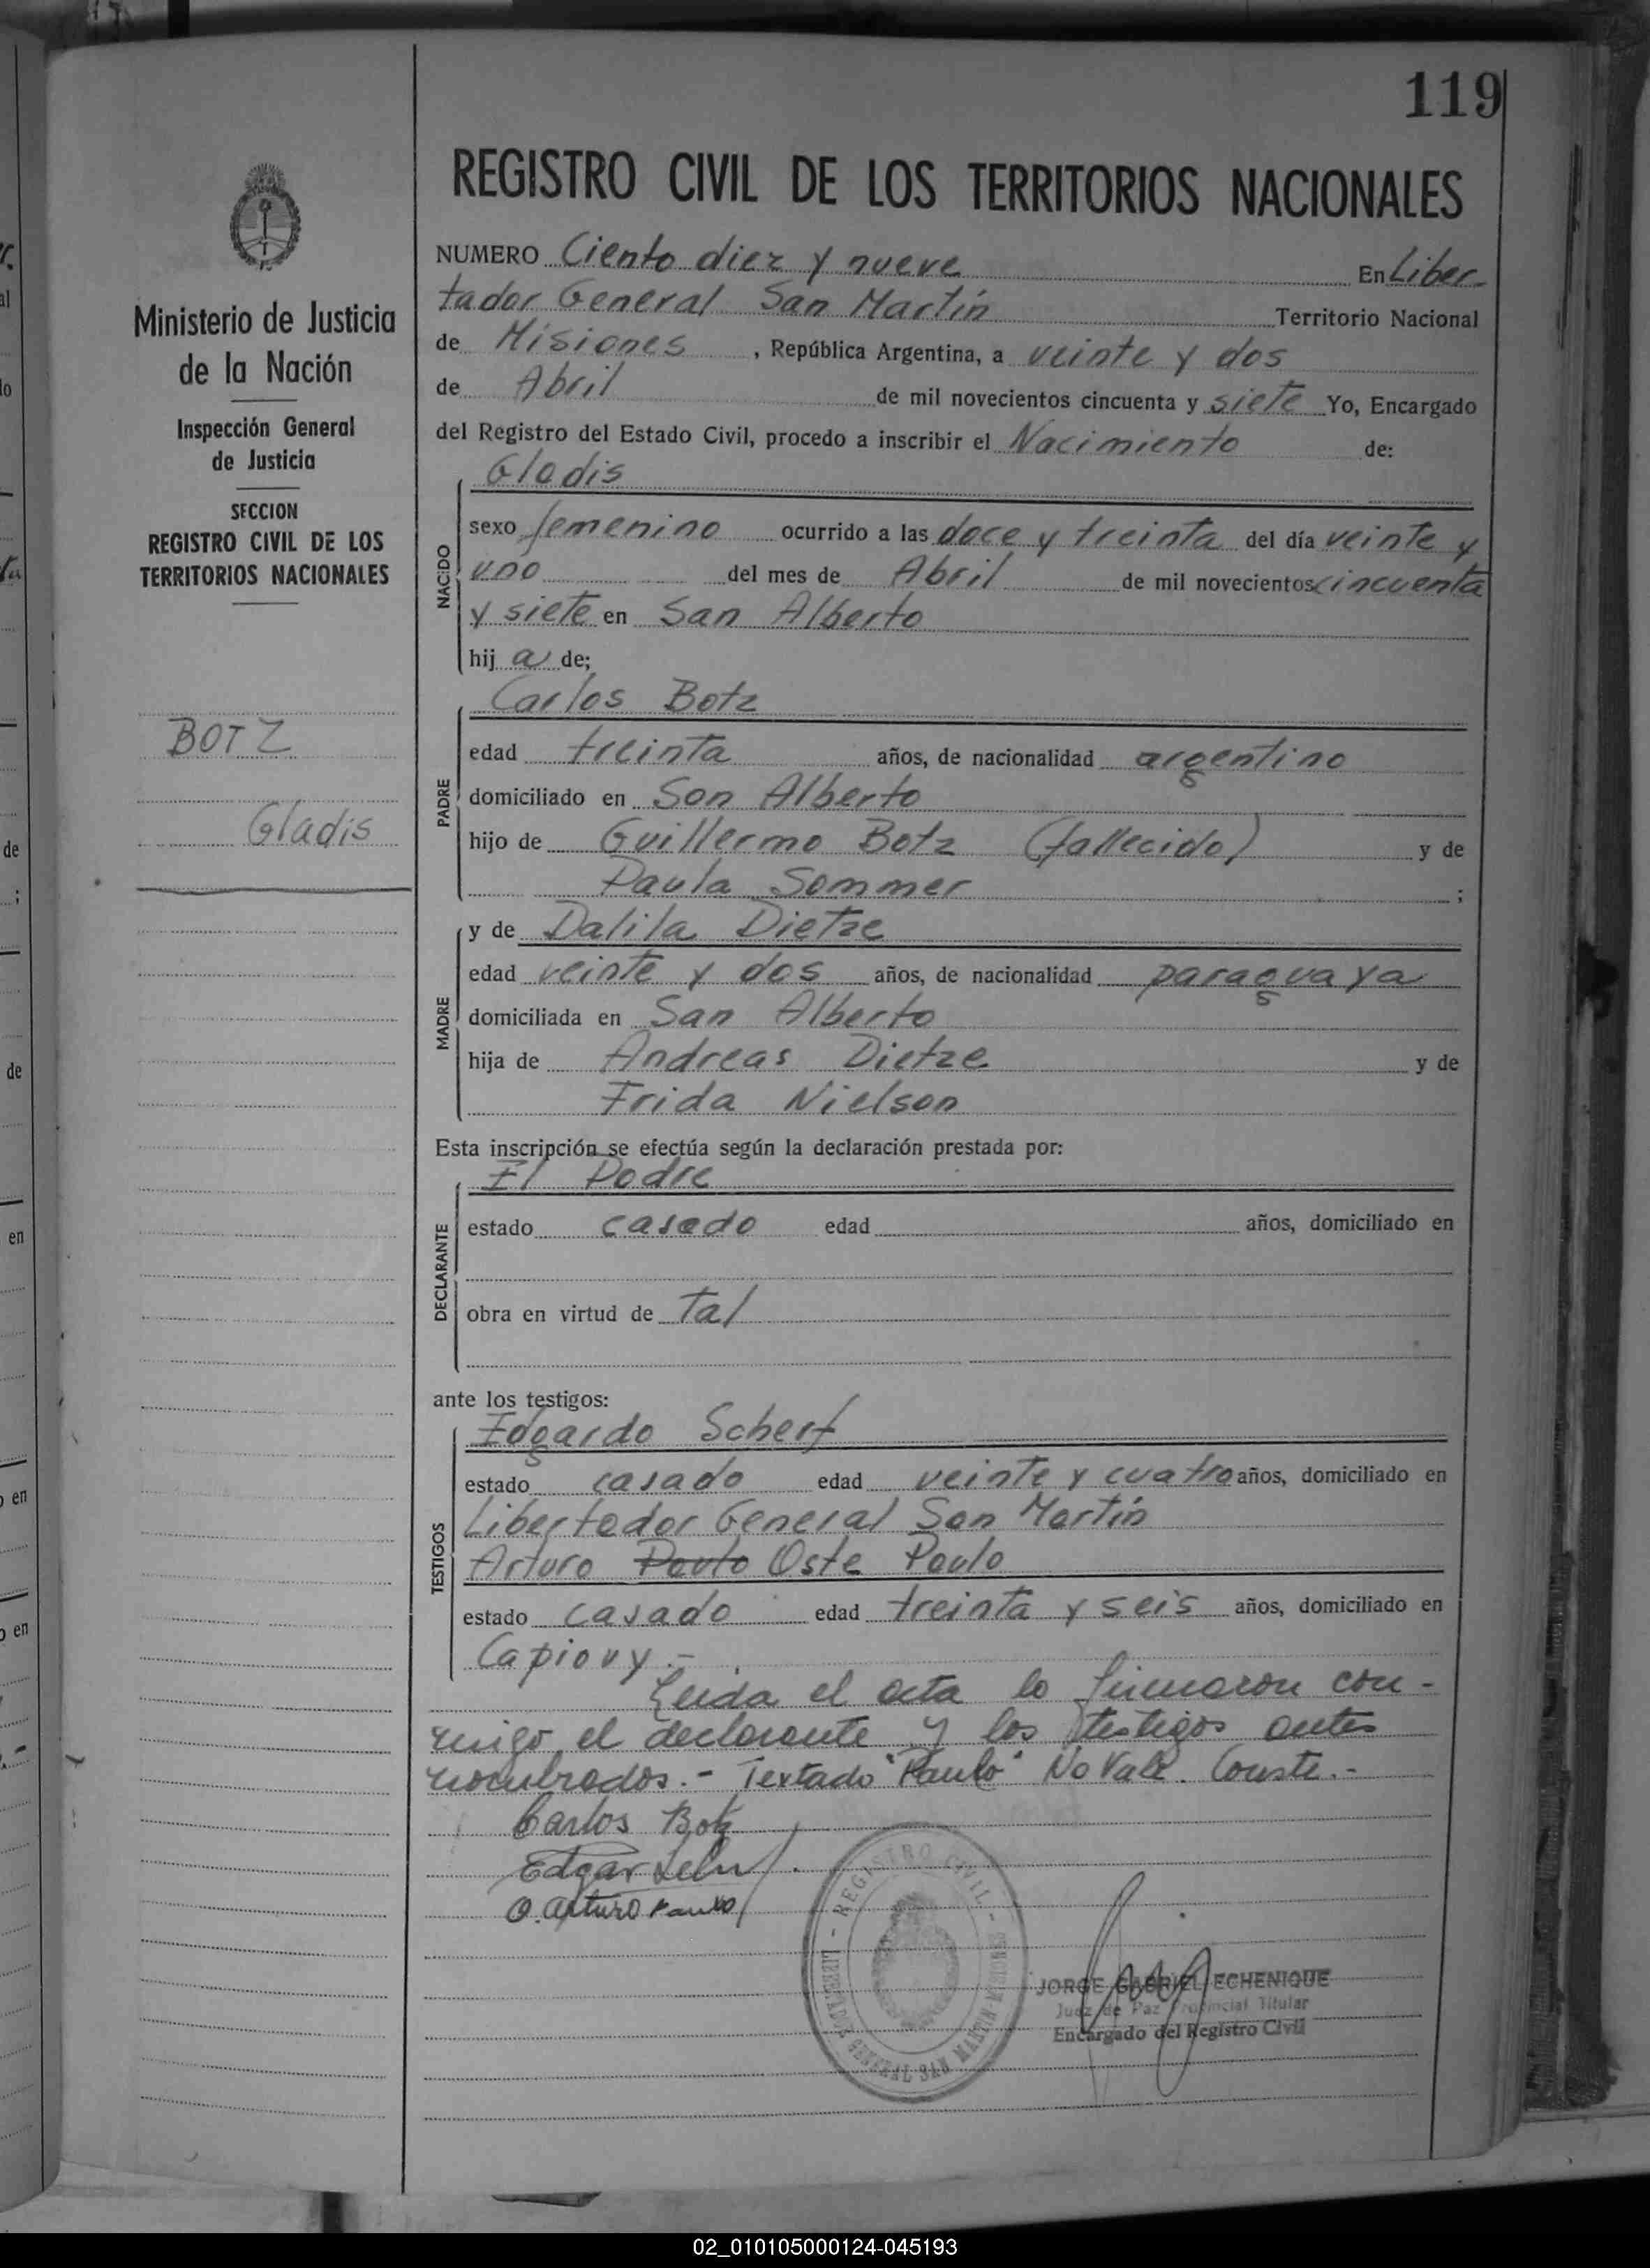 119
REGISTRO CIVIL DE LOS TERRITORIOS NACIONALES
Ministerio de Justicia
de la Nación
Inspección General
de Justicia
SECCION
REGISTRO CIVIL DE LOS
TERRITORIOS NACIONALES
BOTZ
Gladis
NUMERO Ciento diez y nueve En Liber-
tador General San Martín Territorio Nacional
de Misiones , República Argentina, a veinte y dos
de Abril de mil novecientos cincuenta y siete Yo, Encargado
del Registro del Estado Civil, procedo a inscribir el Nacimiento de:
Gladis
NACIDO
sexo femenino ocurrido a las doce y treinta del día veinte y
uno del mes de Abril de mil novecientos cincuenta
y siete en San Alberto
hij a de;
Carlos Botz
PADRE
edad treinta años, de nacionalidad argentino
domiciliado en San Alberto
hijo de Guillermo Botz (fallecido) y de
Paula Sommer ;
y de Dalila Dietze
MADRE
edad veinte y dos años, de nacionalidad paraguaya
domiciliada en San Alberto
hija de Andreas Dietze y de
Frida Nielson
Esta inscripción se efectúa según la declaración prestada por:
El Padre
DECLARANTE
estado casado edad años, domiciliado en
obra en virtud de Tal
ante los testigos:
Edgardo Scherf
TESTIGOS
estado casado edad veinte y cuatro años, domiciliado en
Libertador General San Martín
Arturo Paulo Oste Paulo
estado casado edad treinta y seis años, domiciliado en
Capiovy.-
Leida el acta la firmaron con-
migo el declarante y los testigos antes
nombrados.- Textado "Paulo" No Vale. Conste.-
Carlos Botz
Edgar
O. Arturo Paulo
REGISTRO CIVIL - LIBERTADOR GENERAL SAN MARTIN
JORGE GABRIEL ECHENIQUE
Juez de Paz Provincial Titular
Encargado del Registro Civil
02_010105000124-045193